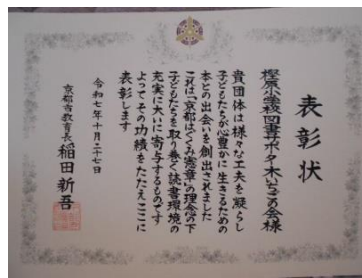 表彰状
樫原小学校図書サポーター木いちごの会様
貴団体は様々な工夫を凝らし
子どもたちが心豊かに生きるための
本との出会いを創出されました
これは「京都はぐくみ憲章」の理念の下
子どもたちを取り巻く読書環境の
充実に大いに寄与するものです
よってその功績をたたえここに
表彰します
令和七年十月二十七日
京都市教育長 稲田新吾